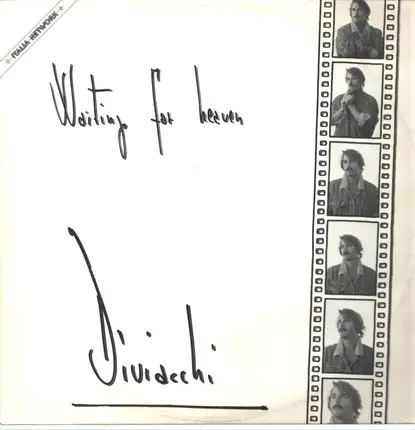 + ITALIA NETWORK +
Waiting for heaven
Dividechi